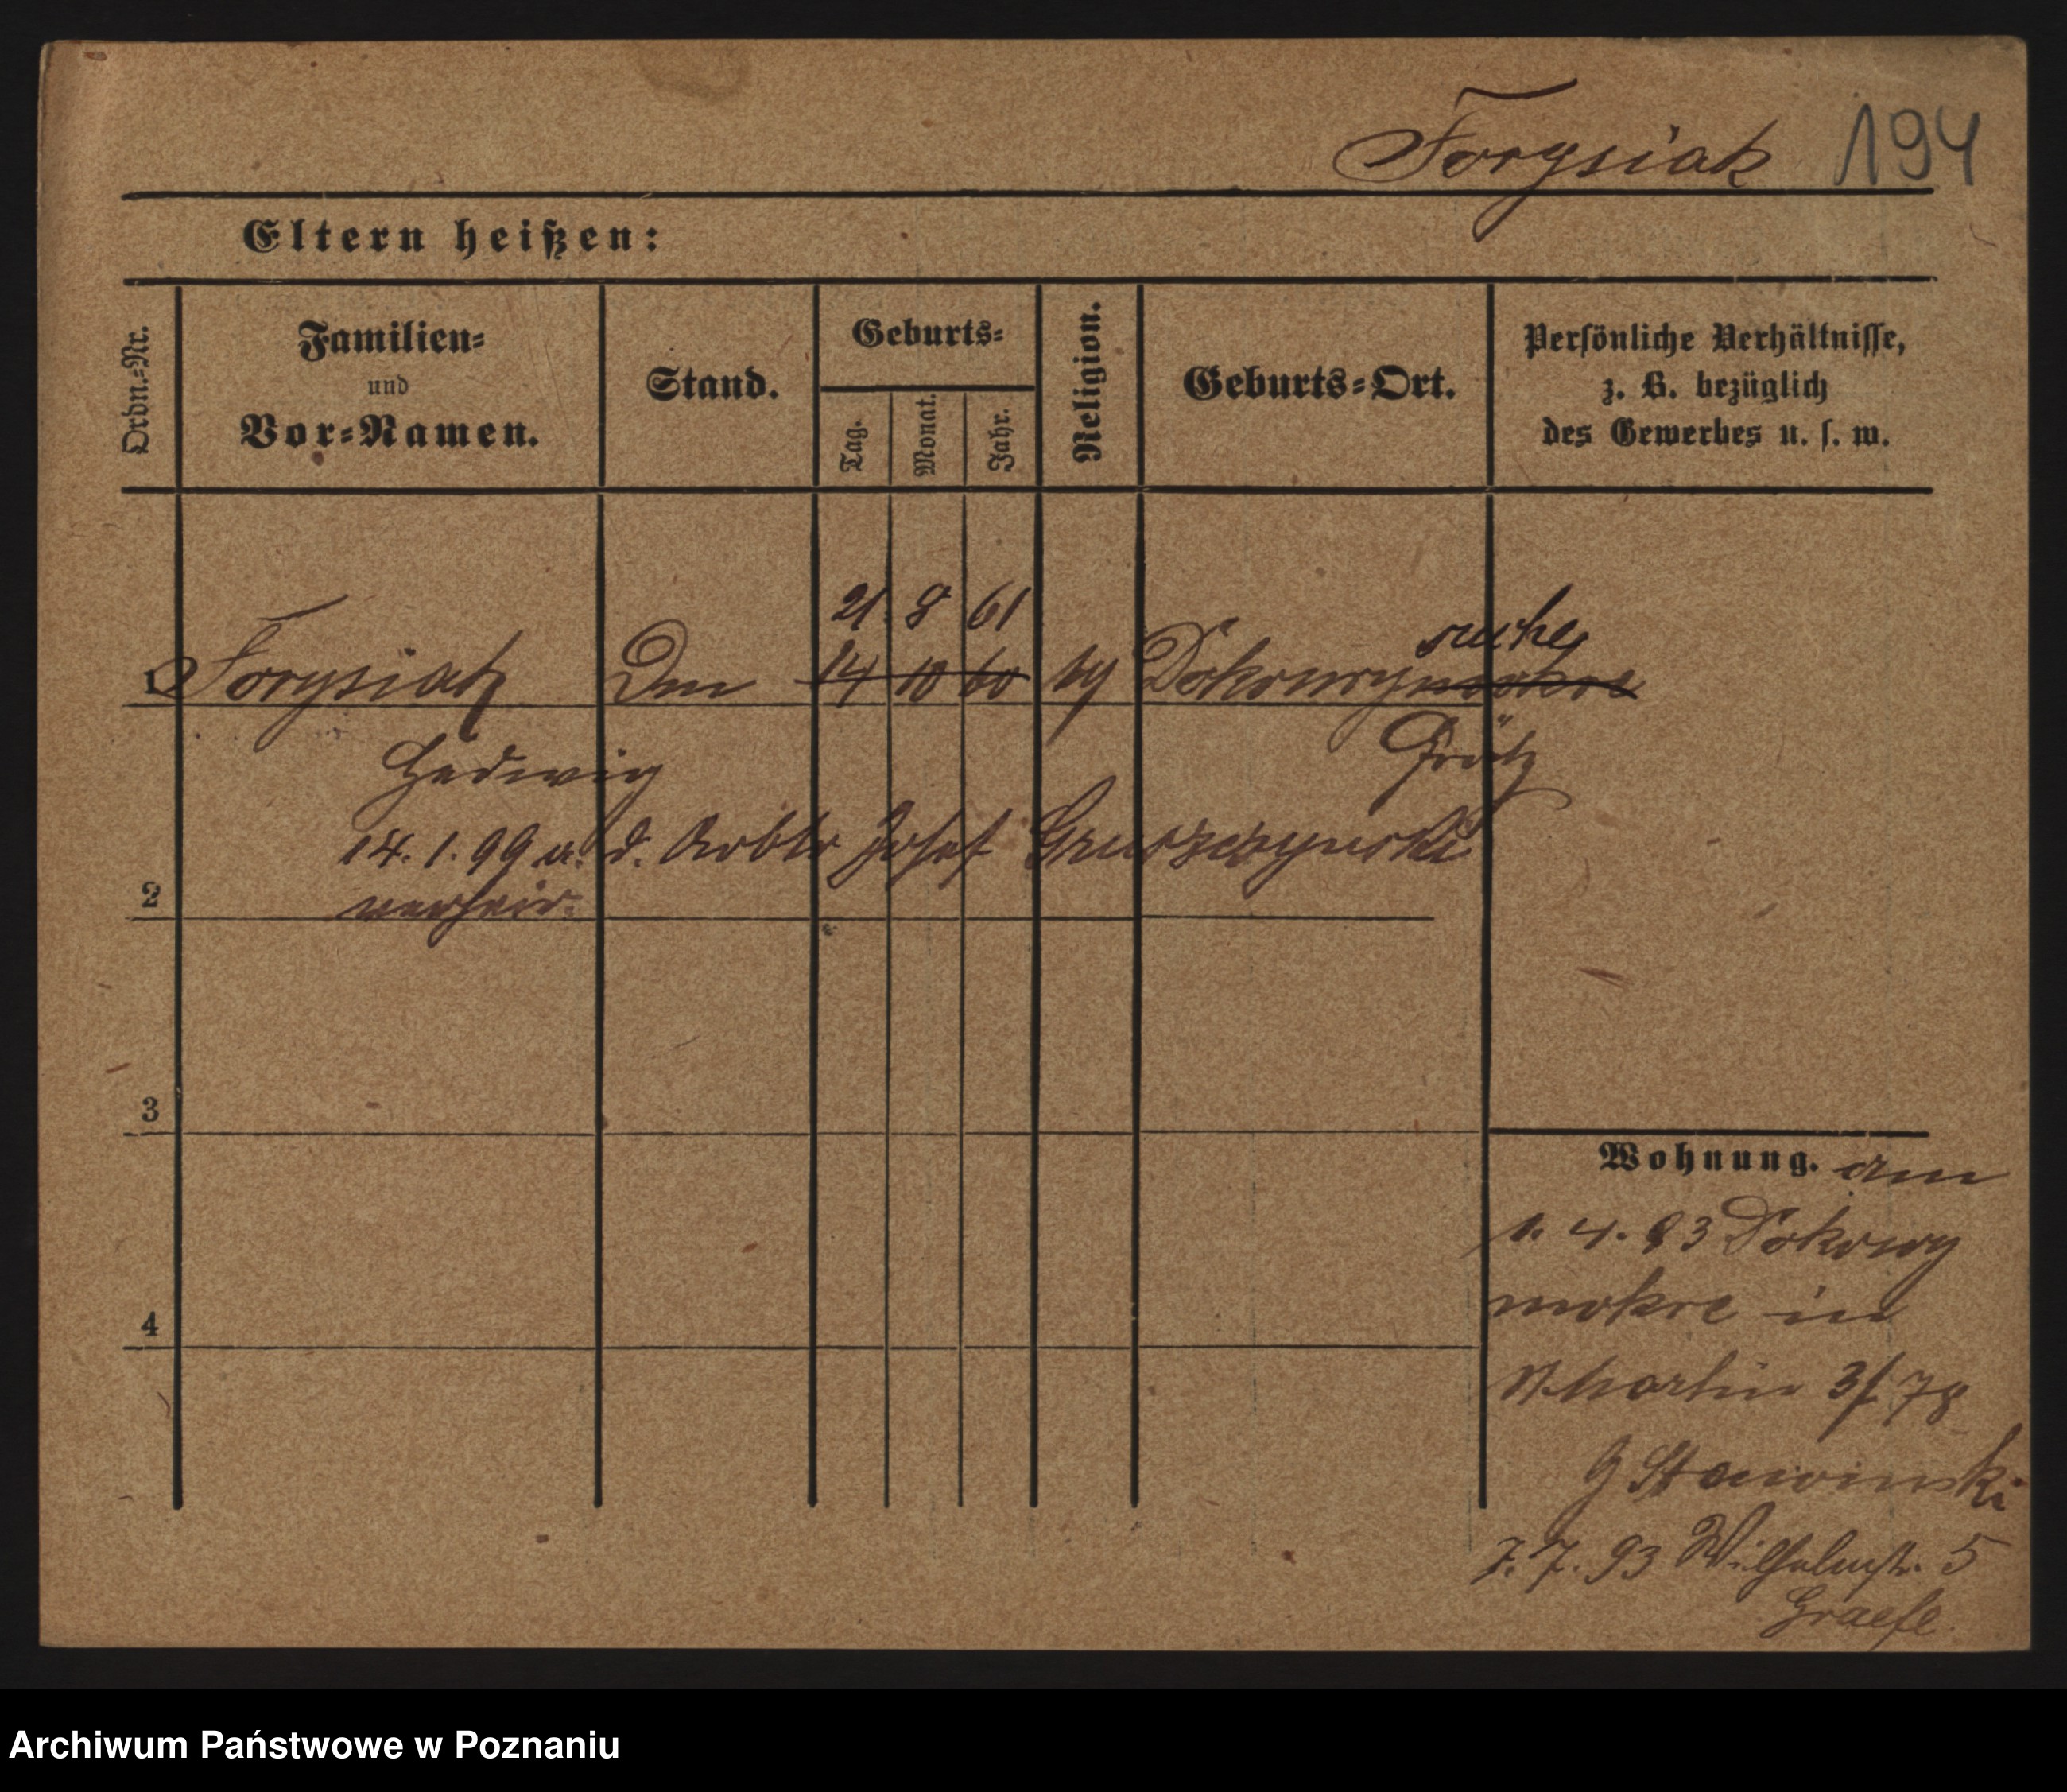 Forysiak 194
Eltern heißen:
Ordn.-Nr.
Familien-
und
Vor-Namen.
Stand.
Geburts-
Tag.
Monat.
Jahr.
Religion.
Geburts-Ort.
Persönliche Verhältnisse,
z. B. bezüglich
des Gewerbes u. s. w.
21. 8 61 suche
1 Forysiak 14 10 60 Dokowymokre
Hedwig Grätz
14. 1. 99 a. d. Arbtr Josef Gruszczynski
2 verheir.
3
4
Wohnung. am
1. 4. 93 Dokowy
mokre in
St Martin 78
G Stawinski
7. 7. 93 Wilhelmstr. 5
Graefe
Archiwum Państwowe w Poznaniu